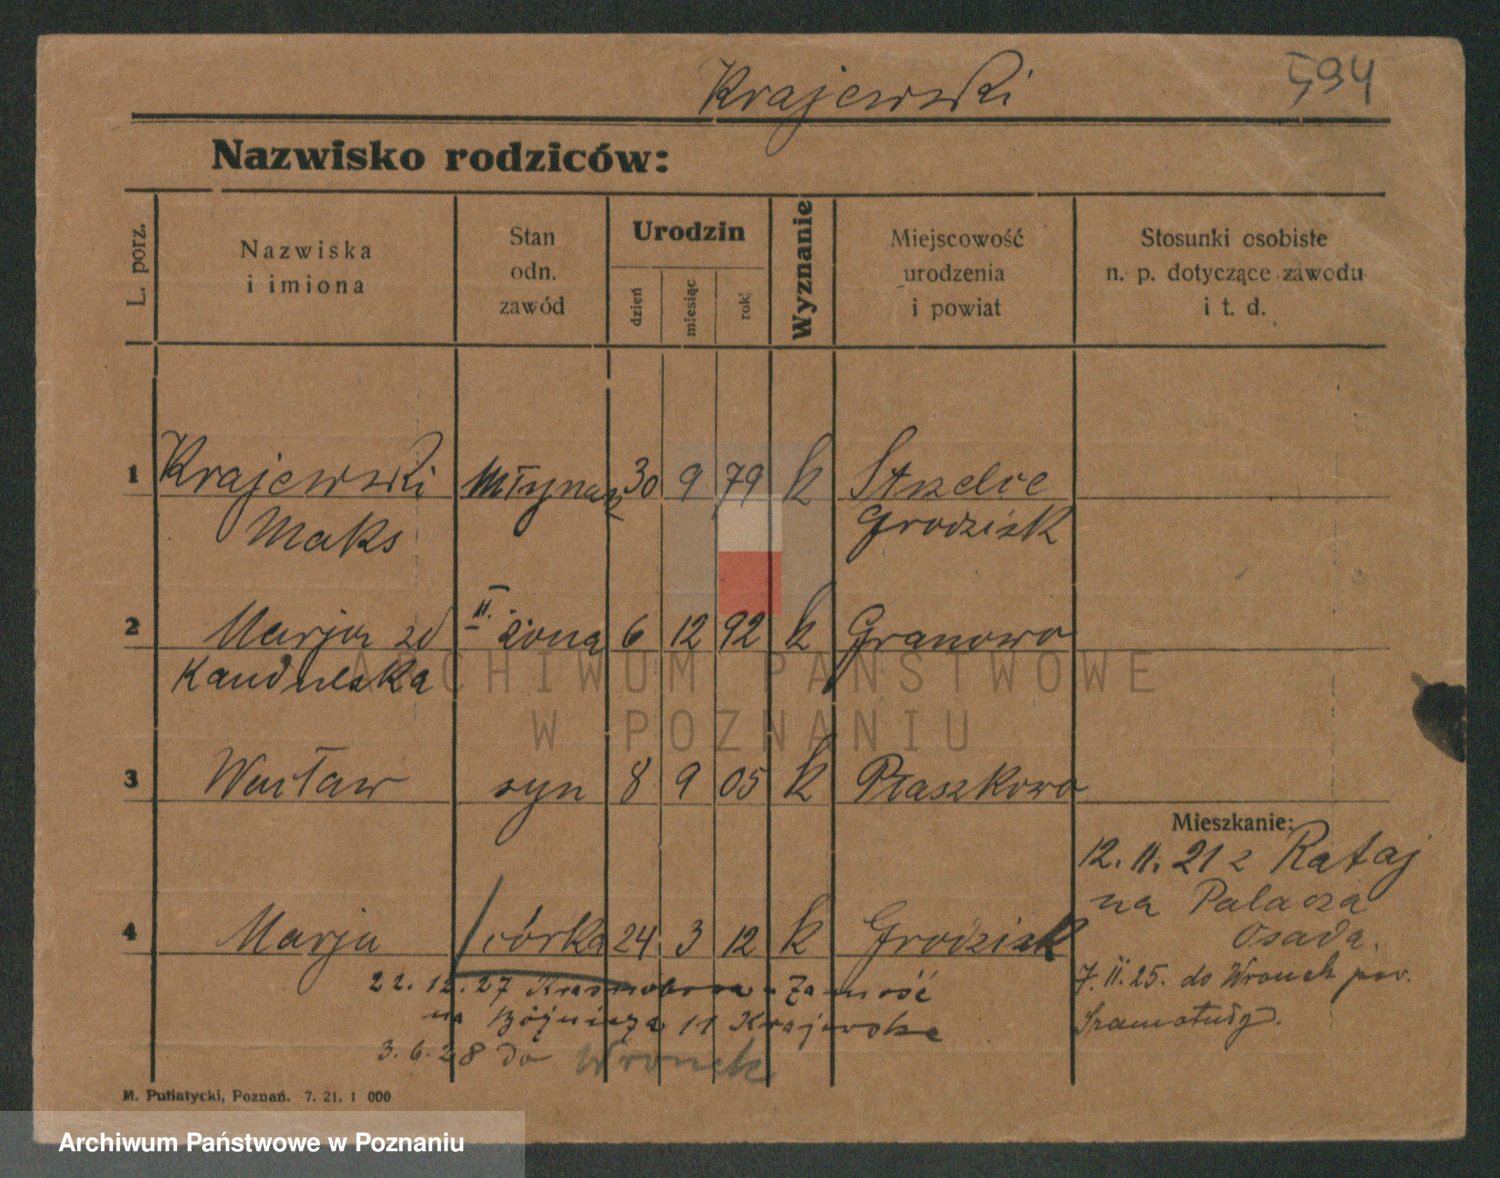 Krajewski 594
Nazwisko rodziców:
L. porz.
Nazwiska
i imiona
Stan
odn.
zawód
Urodzin
dzień
miesiąc
rok
Wyznanie
Miejscowość
urodzenia
i powiat
Stosunki osobiste
n. p. dotyczące zawodu
i t. d.
1 Krajewski młynarz 30 9 79 k Strzelce
Maks Grodzisk
2 Marja zd II. żona 6 12 92 k Granowo
3 Wacław syn 8 9 05 k Ptaszkowo
Mieszkanie:
12. 11. 21 z Rataj
na Palacza
Osada.
4 Marja córka 24 3 12 k Grodzisk
7. II. 25. do Wronek pow.
Szamotuły.
22. 12. 27 Zamość
na 11 Krajewska
3. 6. 28 do Wronek
M. Putiatycki, Poznań. 7. 21. 1 000
ARCHIWUM PAŃSTWOWE
W POZNANIU
Archiwum Państwowe w Poznaniu